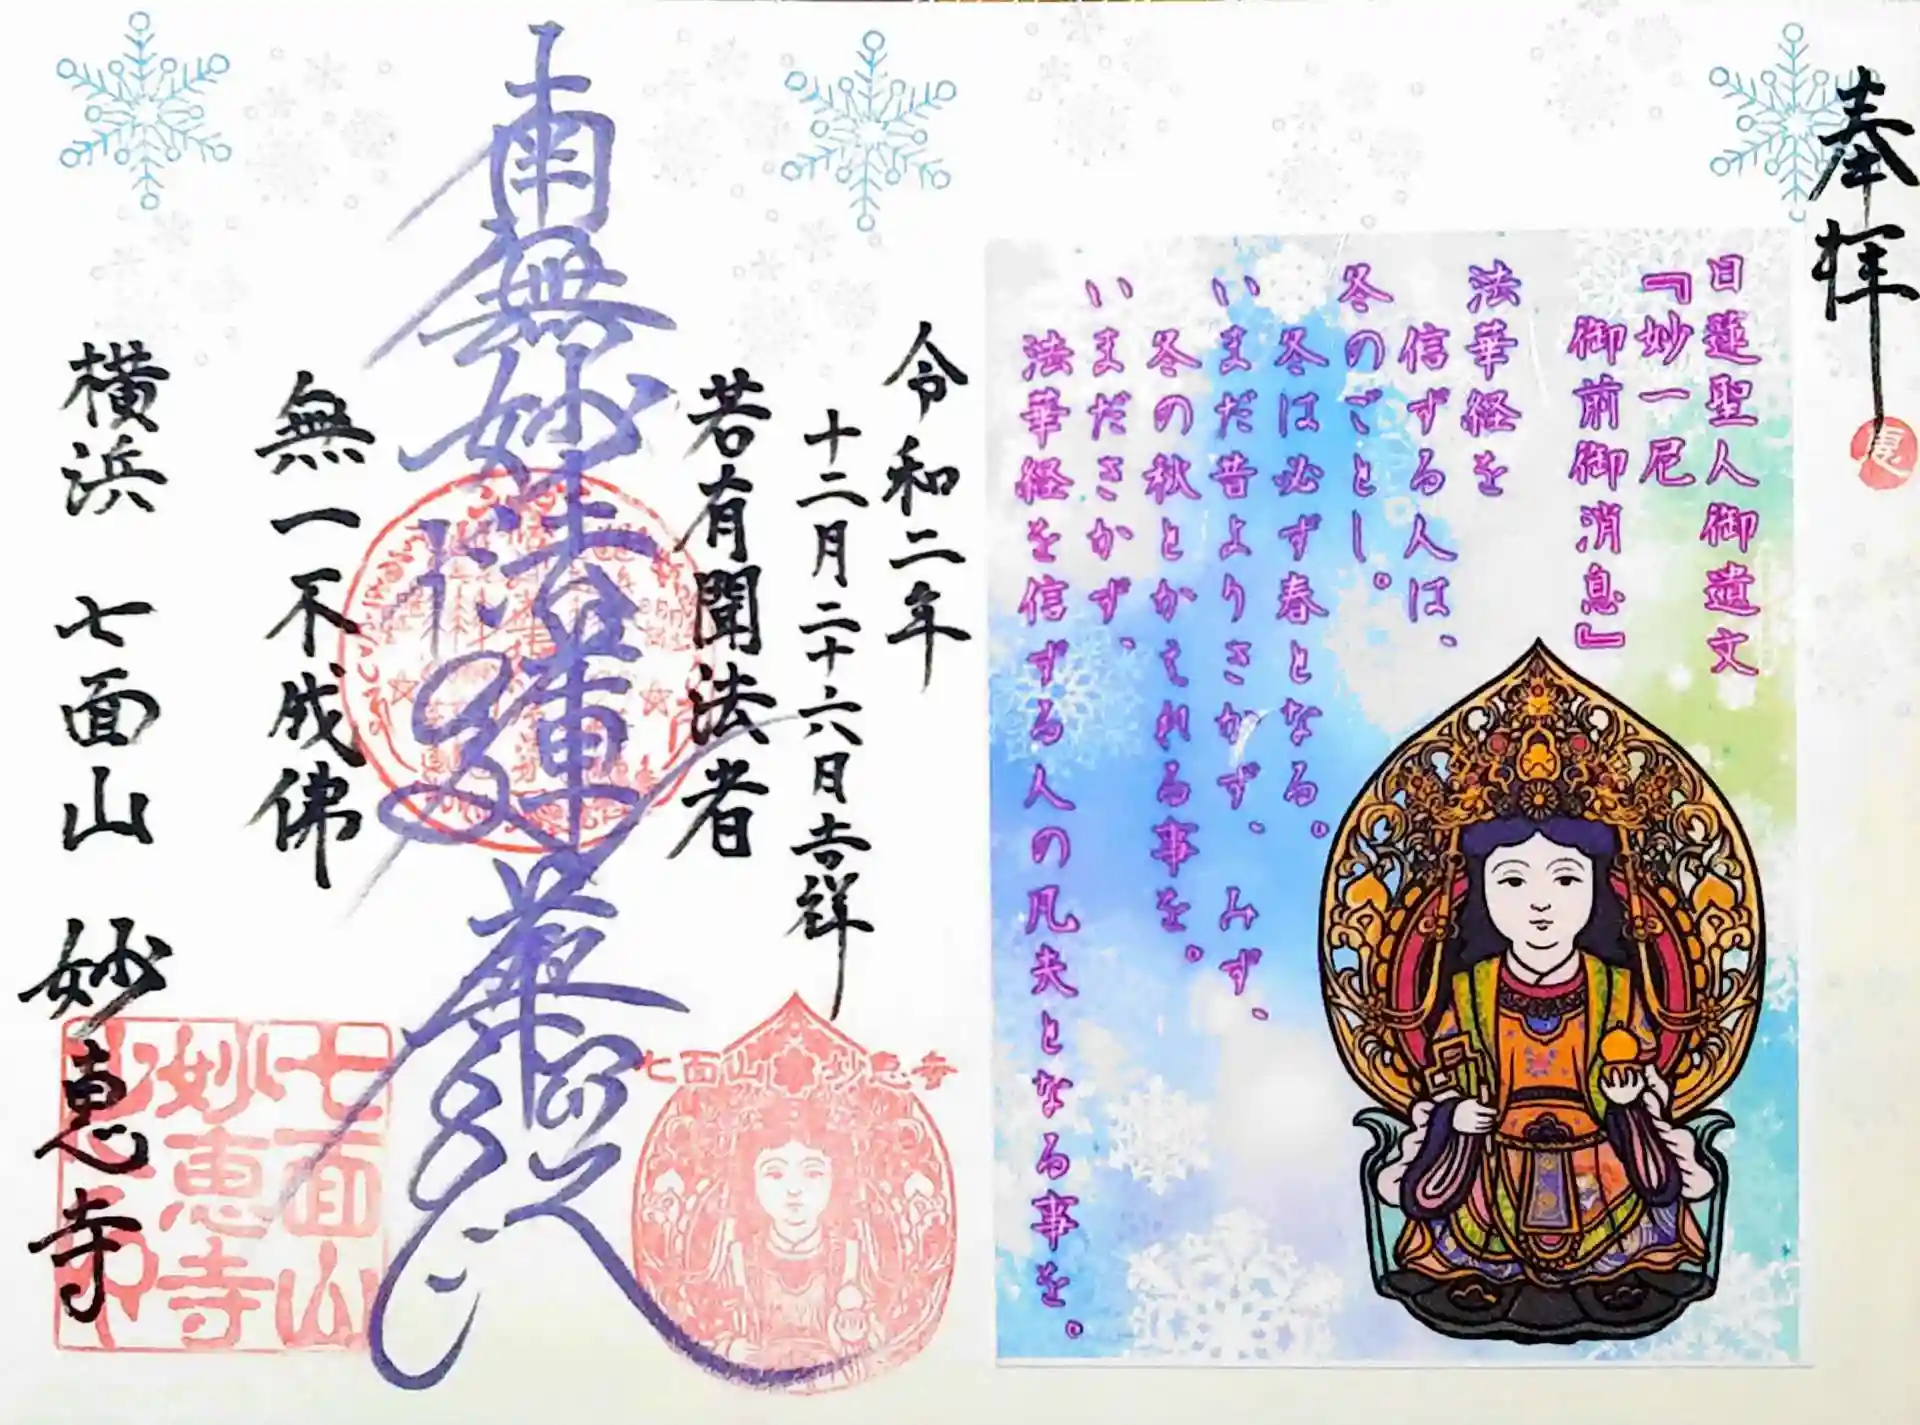 奉拝
恵
日蓮聖人御遺文
『妙一尼
御前御消息』
法華経を
信ずる人は、
冬のごとし。
冬は必ず春となる。
いまだ昔よりきかず、みず、
冬の秋とかえれる事を。
いまだきかず、
法華経を信ずる人の凡夫となる事を。
令和二年
十二月二十六日吉祥
若有聞法者
南無妙法蓮華経
無一不成佛
横浜 七面山 妙恵寺
七面山 妙恵寺
七面山
妙恵寺